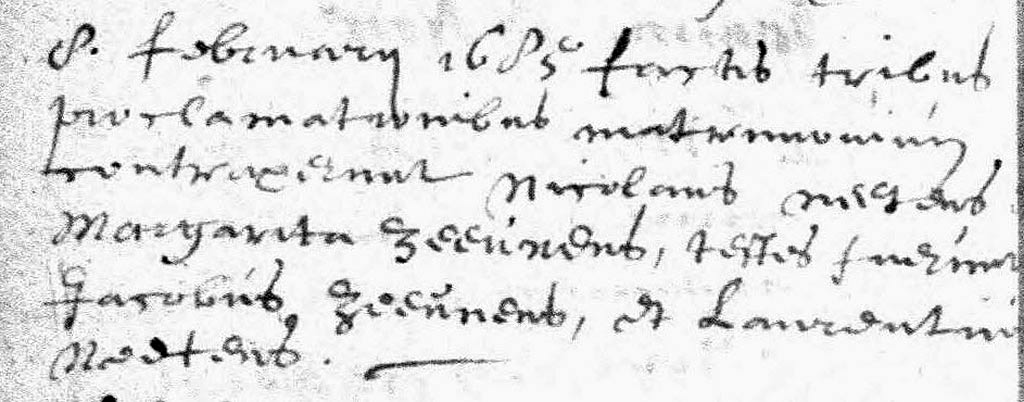 8. februarij 1685 factis tribus
proclamationibus matrimonium
contraxerunt Nicolaus neetens
Margarita Zeeúnens, testes fuerunt
Jacobús Zeeúnens, et Laurentius
Neetens.